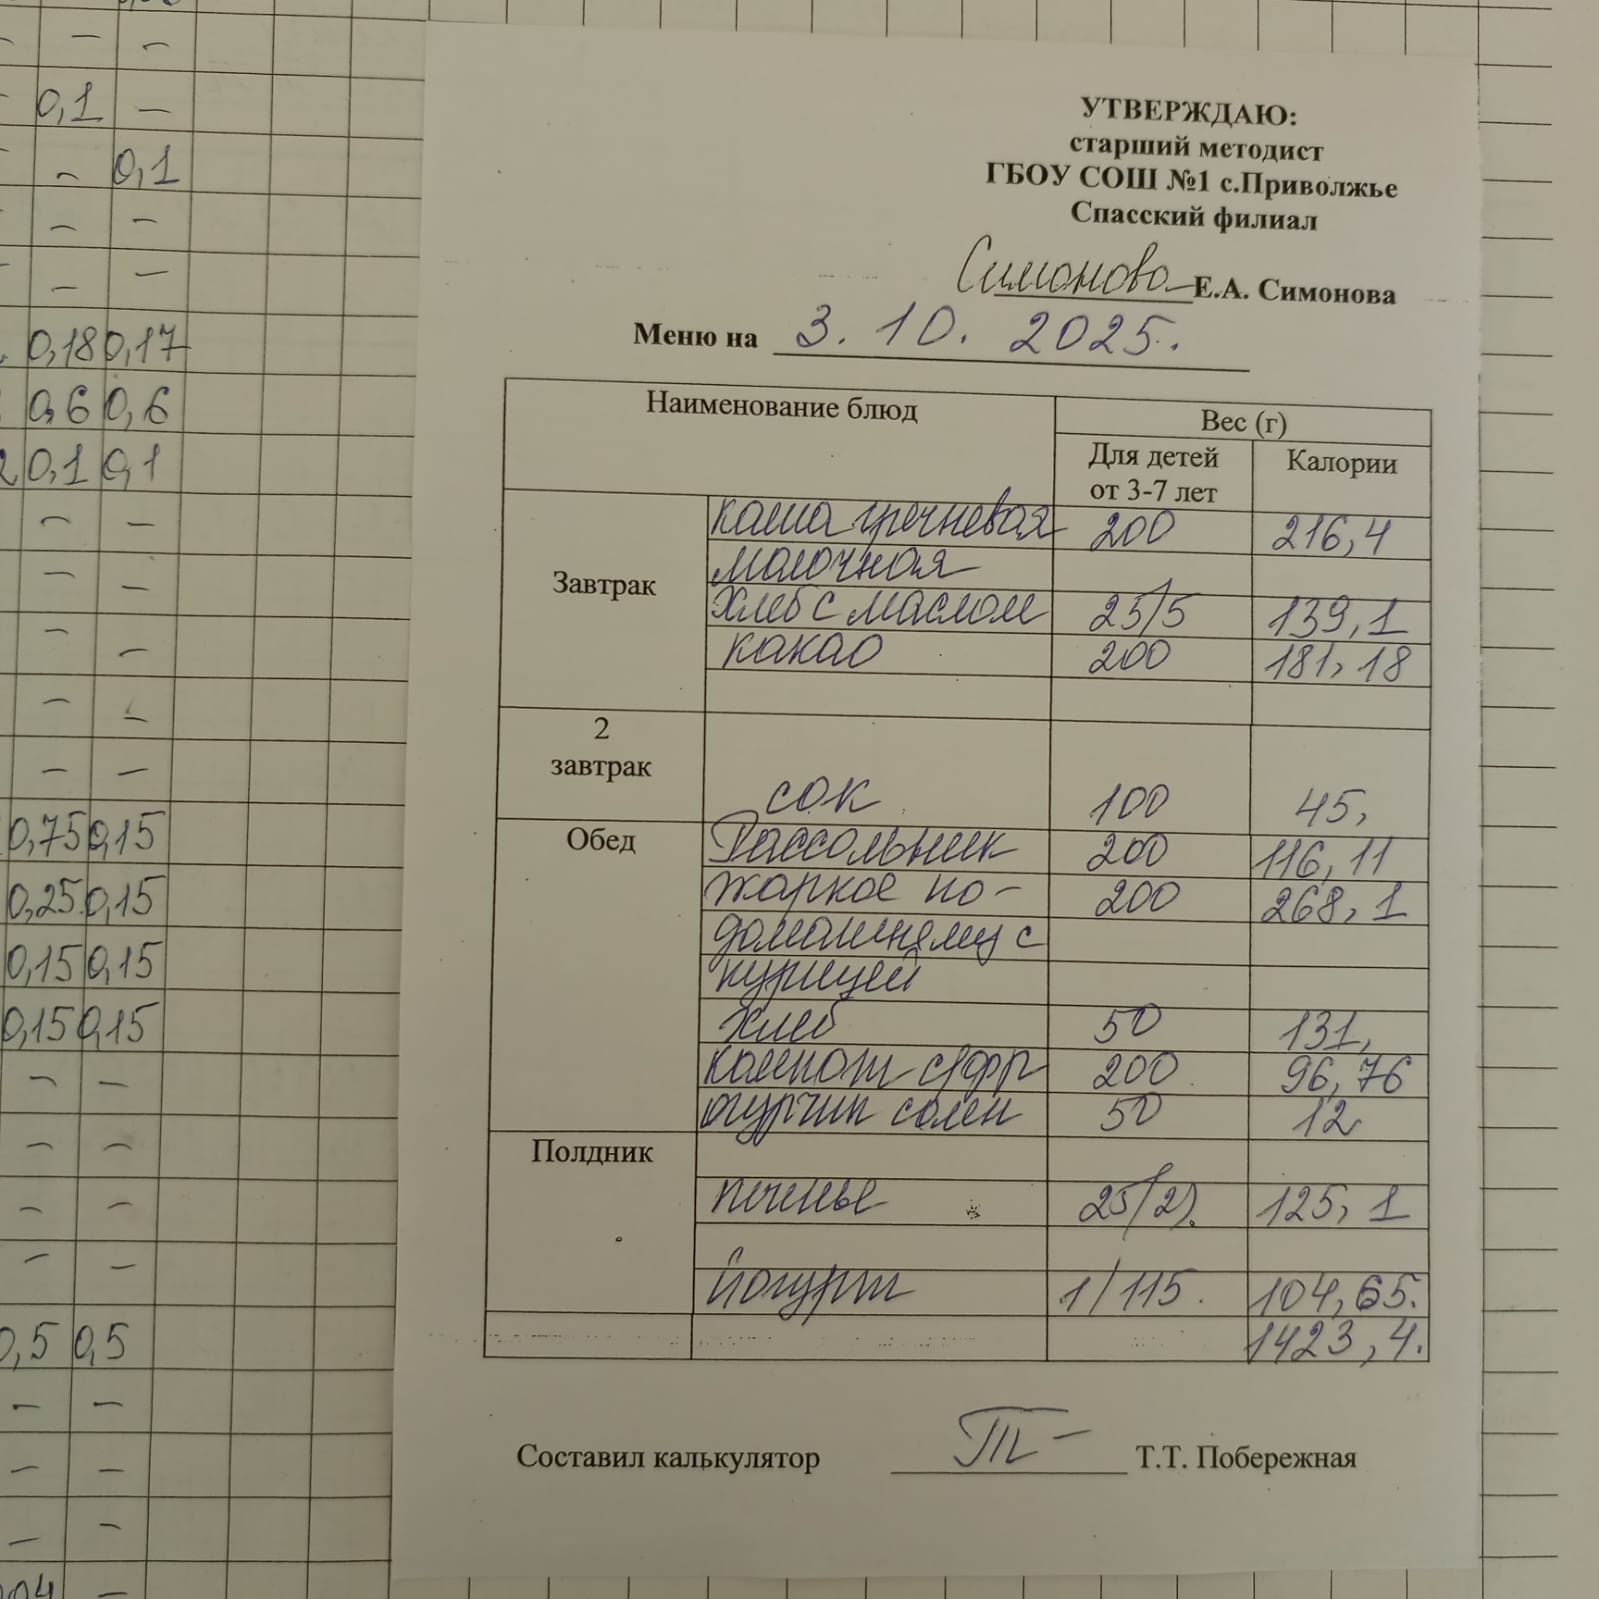 0,1 —
- 0,1
0,18 0,17
0,6 0,6
0,1 0,1
0,75 0,15
0,25 0,15
0,15 0,15
0,15 0,15
0,5 0,5
УТВЕРЖДАЮ:
старший методист
ГБОУ СОШ №1 с.Приволжье
Спасский филиал
Симонова Е.А. Симонова
Меню на 3. 10. 2025.
Наименование блюд Вес (г)
Для детей Калории
от 3-7 лет
Завтрак
каша гречневая 200 216,4
молочная
хлеб с маслом 25/5 139,1
какао 200 181,18
2
завтрак
сок 100 45,
Обед Рассольник 200 116,11
жаркое по- 200 268,1
домашнему с
курицей
хлеб 50 131,
компот с/фр 200 96,76
огурчик солен 50 12
Полдник
печенье 25/2). 125,1
йогурт 1/115. 104,65.
1423,4.
Составил калькулятор Т.Т. Побережная